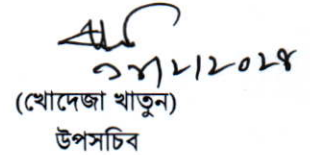 ১৮/২/২০২৪
(খোদেজা খাতুন)
উপসচিব